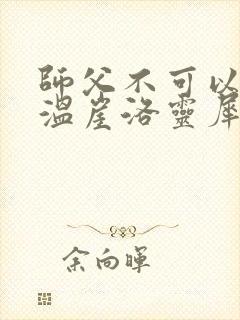 師父不可以
溫崖洛靈犀
余向暉